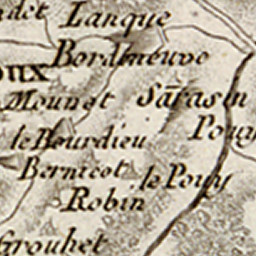 Lanque
Bordeneuve
Mounot
Sarrasin
le Bourdieu
Bernicot
le Pouy
Robin
Grouhet